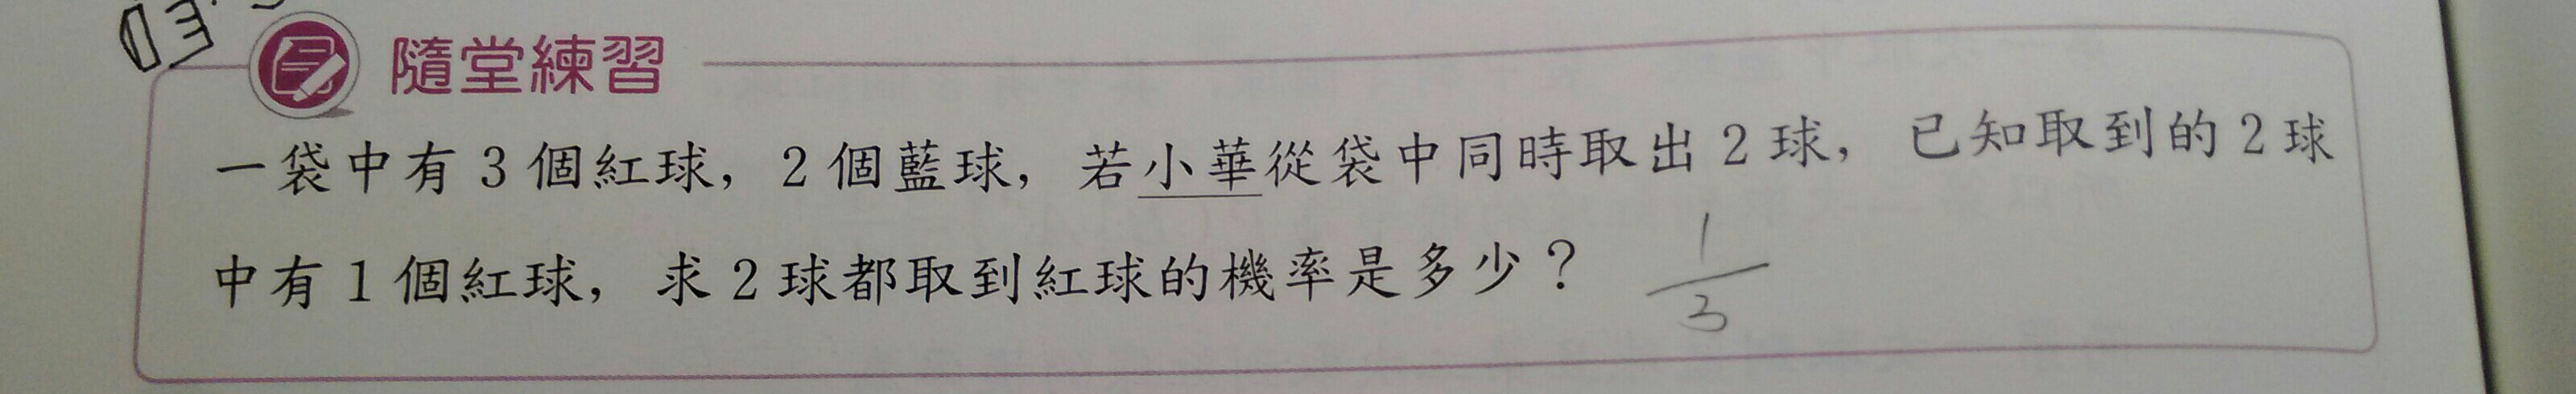 隨堂練習
一袋中有 3 個紅球，2 個藍球，若小華從袋中同時取出 2 球，已知取到的 2 球
中有 1 個紅球，求 2 球都取到紅球的機率是多少？ 1/3